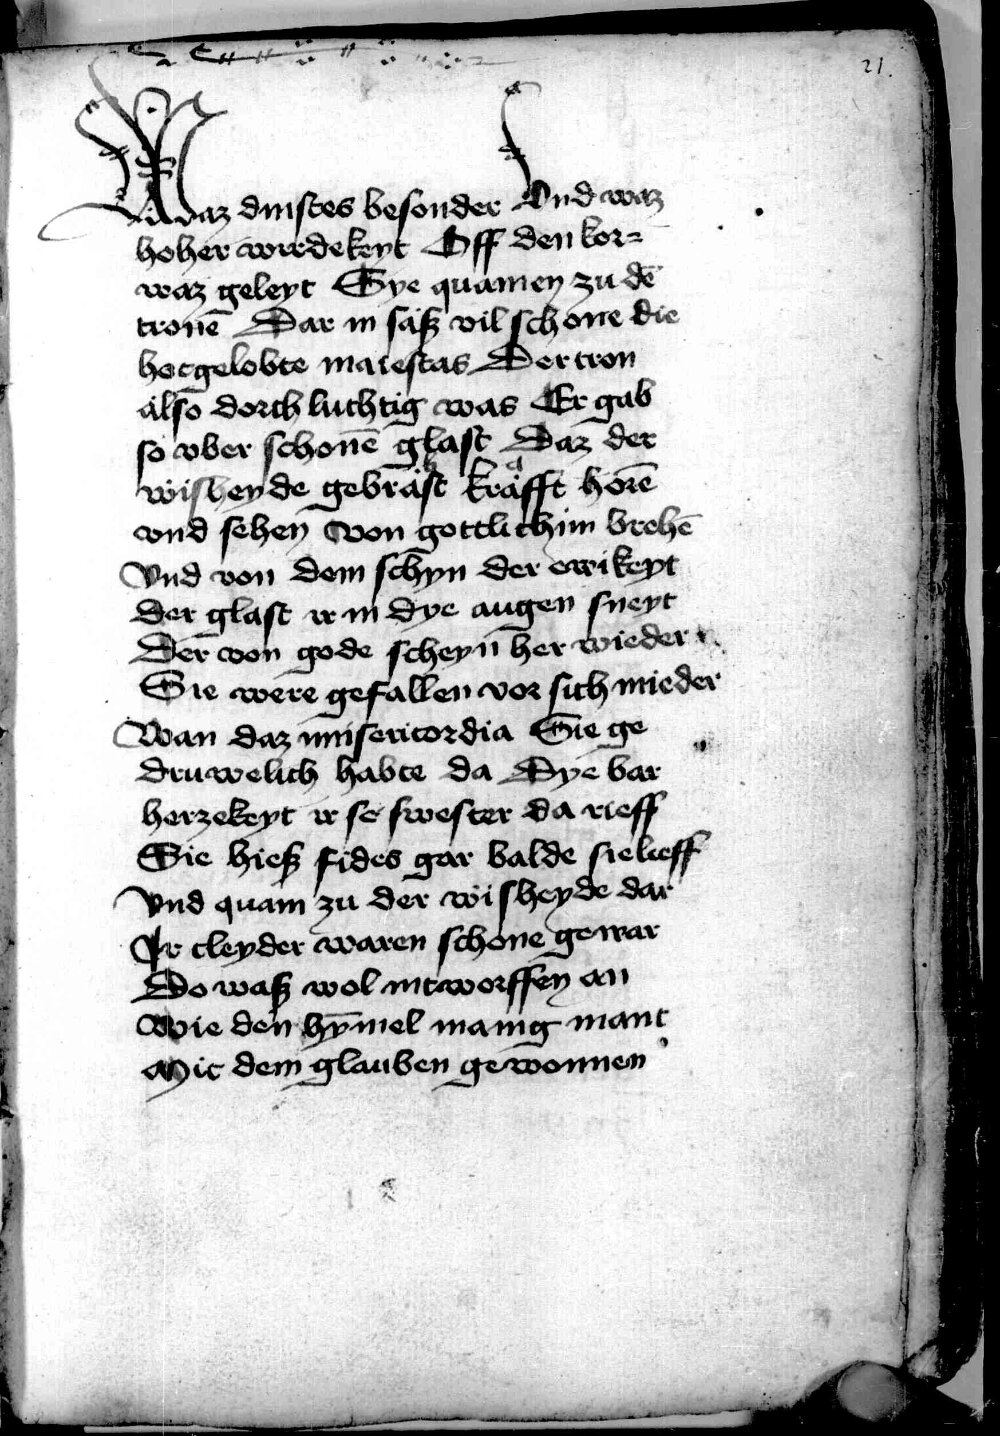 21.
Waz dinstes besonder Vnd waz
hoher wirdekeyt Vff den kor=
waz geleyt Sye quamen zu dē
tronē Dar in saß vil schone die
hocgelobte maiestas Der tron
also dorch luchtig was Er gab
so vber schonē glast Daz der
wisheyde gebrast krafft horē
vnd sehen Von gottlichim brehē
Vnd von dem schyn der ewikeyt
der glast ir in dye augen sneyt
Der von gode scheyn her wieder
Sie were gefallen vor sich nieder
Wan daz misericordia Sie ge
druwelich habte da Dye bar
herzekeyt ir se swester da rieff
Sie hieß fides gar balde sie lieff
Vnd quam zu der wisheyde dar
Ir cleyder waren schone gewar
Do waß wol intworffen an
Wie den hȳmel manig mant
Mit dem glauben gewonnen